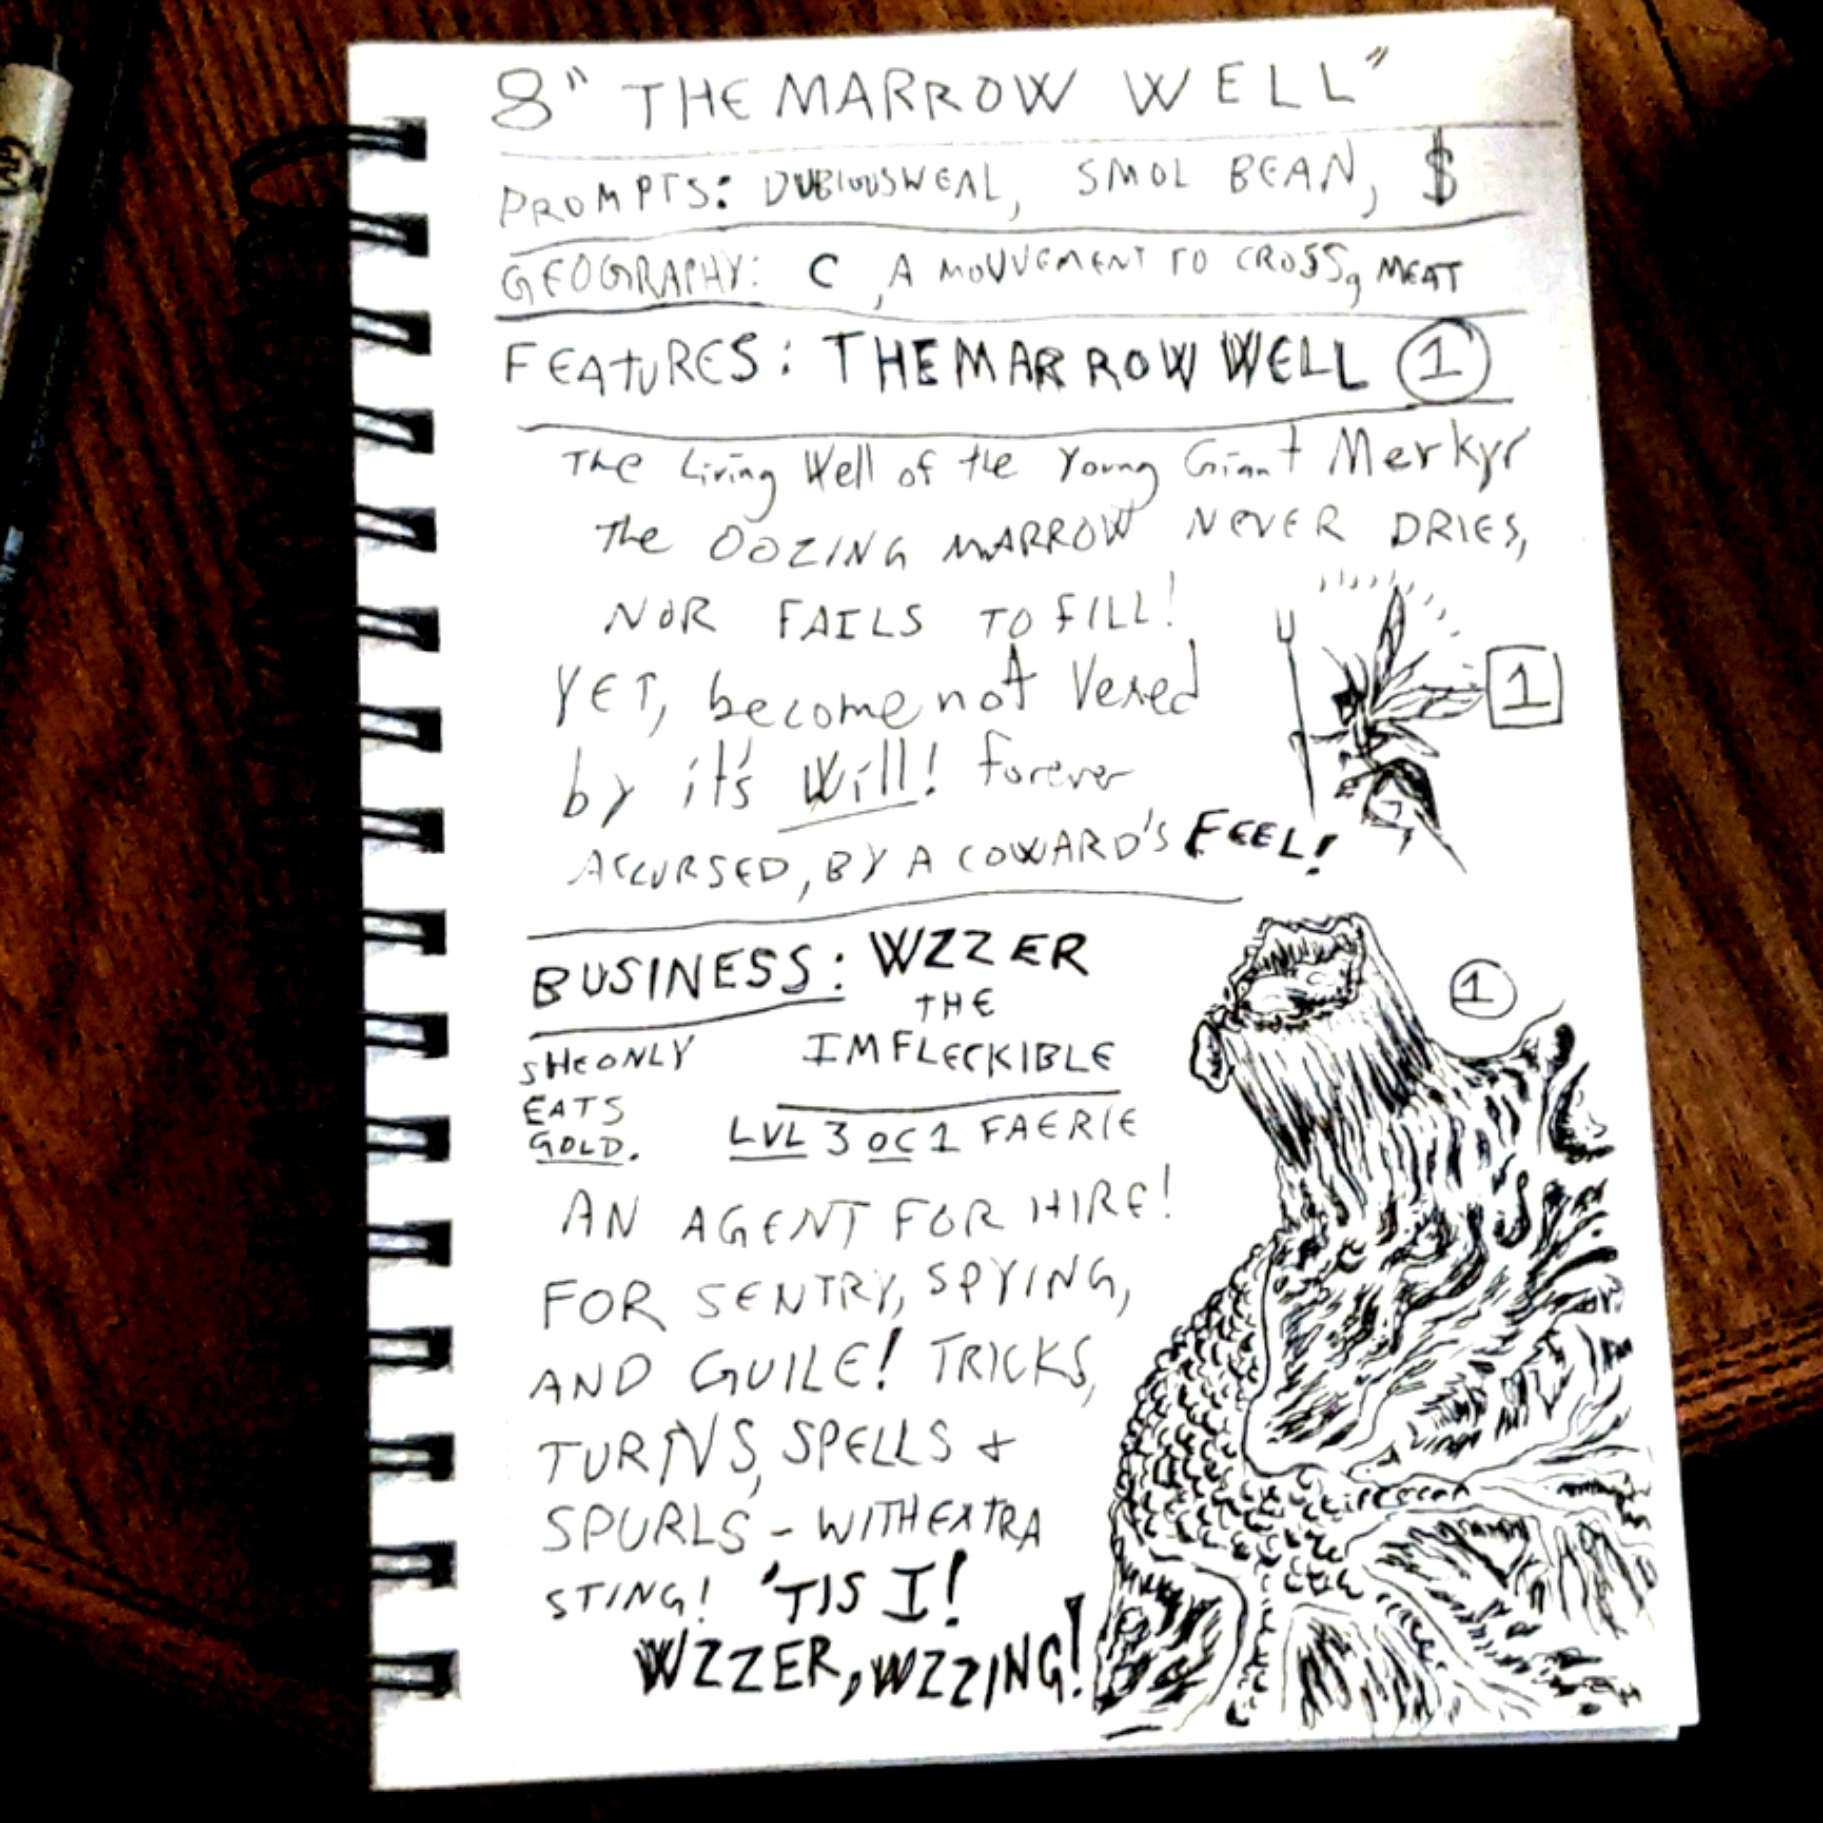 8 "THE MARROW WELL"
PROMPTS: DUBIOUSWEAL, SMOL BEAN, $
GEOGRAPHY: C, A MOUVEMENT TO CROSS, MEAT
FEATURES: THE MARROW WELL 1
The Living Well of the Young Giant Merkyr
The OOZING MARROW NEVER DRIES,
NOR FAILS TO FILL!
YET, become not Vexed
1
by it's Will! forever
ACCURSED, BY A COWARD'S FEEL!
BUSINESS: WZZER
THE
IMFLECKIBLE
1
SHE ONLY
EATS
GOLD.
LVL 3 OC 1 FAERIE
AN AGENT FOR HIRE!
FOR SENTRY, SPYING,
AND GUILE! TRICKS,
TURNS, SPELLS +
SPURLS - WITH EXTRA
STING! 'TIS I!
WZZER, WZZING!